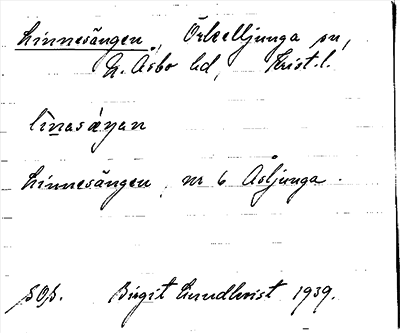 Linnesängen, Örkelljunga sn,
N. Åsbo hd, Krist. l.
linasäŋan
Linnesängen, nr 6 Åsljunga.
SOS. Birgit Lundkvist 1939.